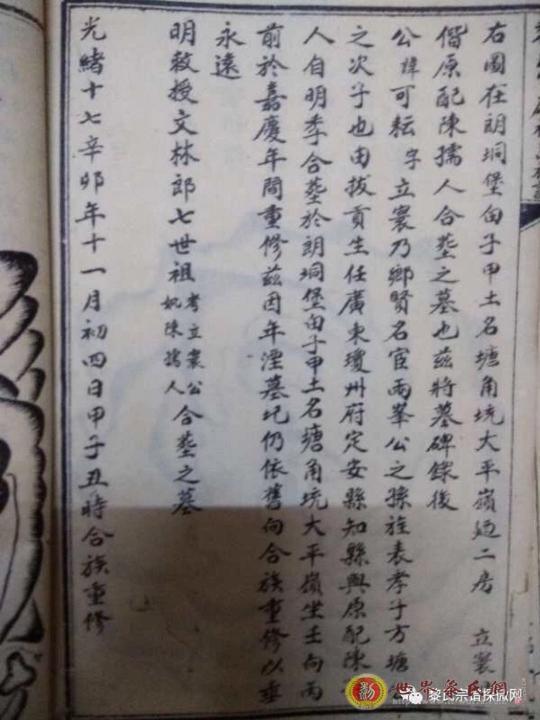 右圖在朗垌堡甶子甲土名塘角坑大平嶺廼二房 立寰
偕原配陳孺人合塟之墓也茲將墓碑錄後
公諱可耘字立寰乃鄉賢名宦兩峯公之孫旌表孝子方塘公
之次子也由拔貢生任廣東瓊州府定安縣知縣與原配陳
人自明季合塟於朗垌堡甶子甲土名塘角坑大平嶺坐壬向丙
前於嘉慶年間重修茲因年湮墓圮仍依舊向合族重修以垂
永遠
明敕授文林郎七世祖考立寰公妣陳孺人合塟之墓
光緒十七辛卯年十一月初四日甲子丑時合族重修
世界黎氏網
黎氏宗譜探微网